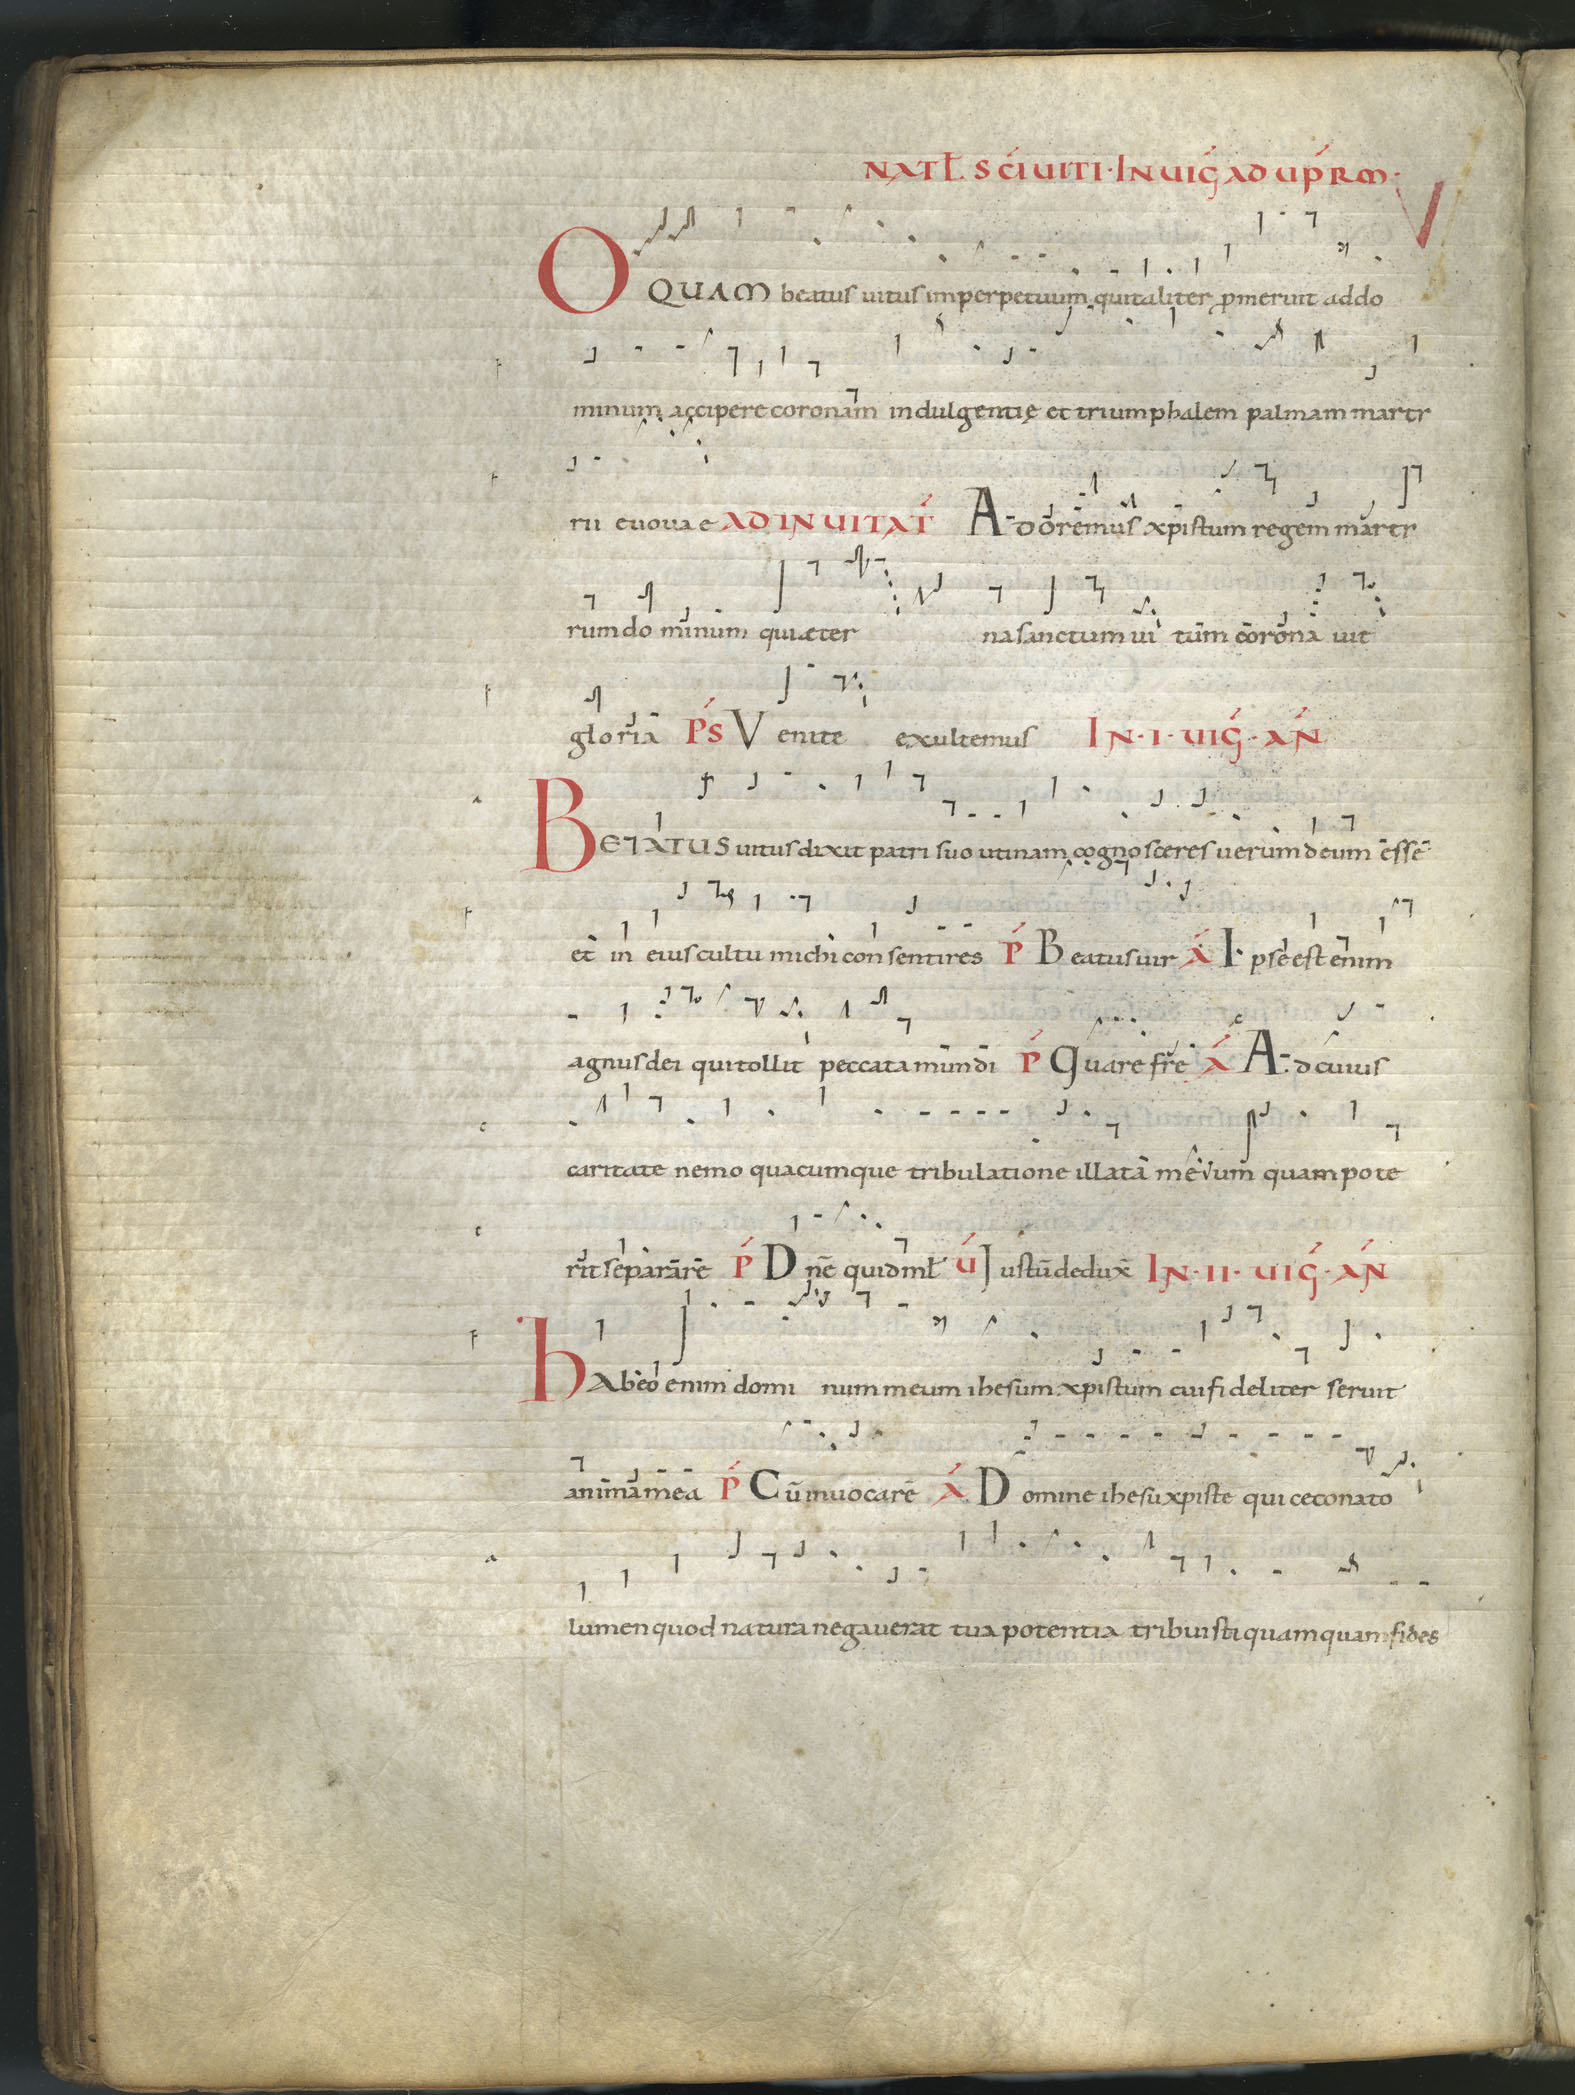 NATL̄ SC̄I UITI · IN UIḠ AD UP̄RM ·
V
O QUAM beatus uitus imperpetuum qui taliter ꝓmeruit ad do
minum accipere coronam indulgentię et triumphalem palmam martr
rii euouae AD INUITAT̄ Adoremus xpistum regem martr
rum do minum qui æter na sanctum ui tum corona uit
gloria PS̄ Venite exultemus IN · I · UIḠ · AN̄
BEATUS uitus dixit patri suo utinam cognosceres uerum deum esse
et in eius cultu michi consentires P̄ Beatus uir Ā Ipse est enim
agnus dei qui tollit peccata mundi P̄ Quare fr̄e Ā Ad cuius
caritate nemo quacumque tribulatione illata me uum quam pote
rit separare P̄ Dn̄e quid ml̄t Ū Iustū dedux̄ IN · II · UIḠ · AN̄
hAbeo enim domi num meum ihesum xpistum cui fideliter seruit
anima mea P̄ Cū inuocare Ā Domine ihesu xpiste qui ceto nato
lumen quod natura negauerat tua potentia tribuisti quamquam fides